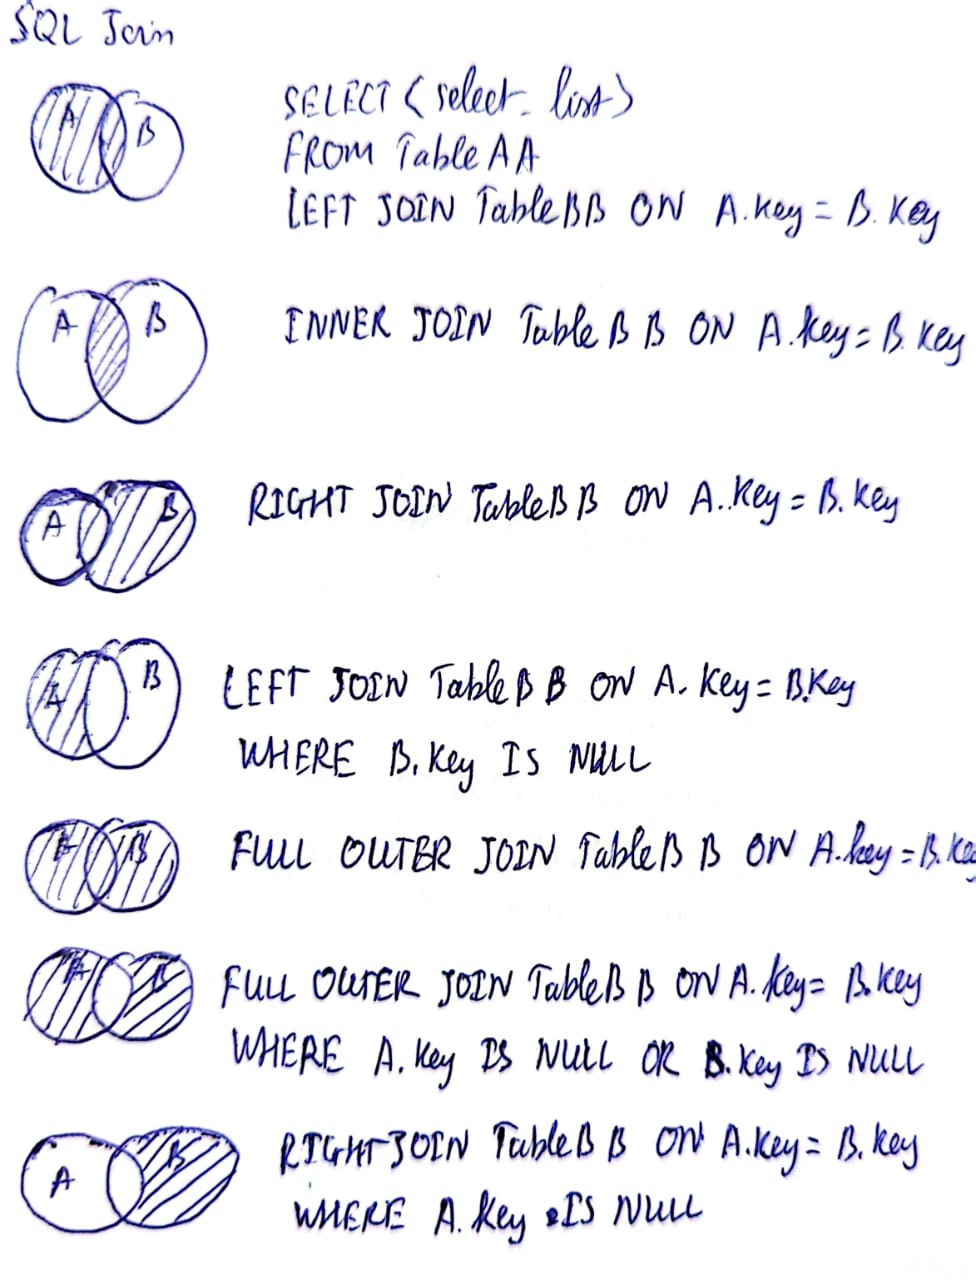 SQL Join
A B
SELECT <select_list>
FROM Table A A
LEFT JOIN Table B B ON A.key = B.key
A B
INNER JOIN Table B B ON A.key = B.key
A B
RIGHT JOIN Table B B ON A..key = B.key
A B
LEFT JOIN Table B B ON A.key = B.key
WHERE B.key IS NULL
A B
FULL OUTER JOIN Table B B ON A.key = B.key
A B
FULL OUTER JOIN Table B B ON A.key = B.key
WHERE A.key IS NULL OR B.key IS NULL
A B
RIGHT JOIN Table B B ON A.key = B.key
WHERE A.key IS NULL